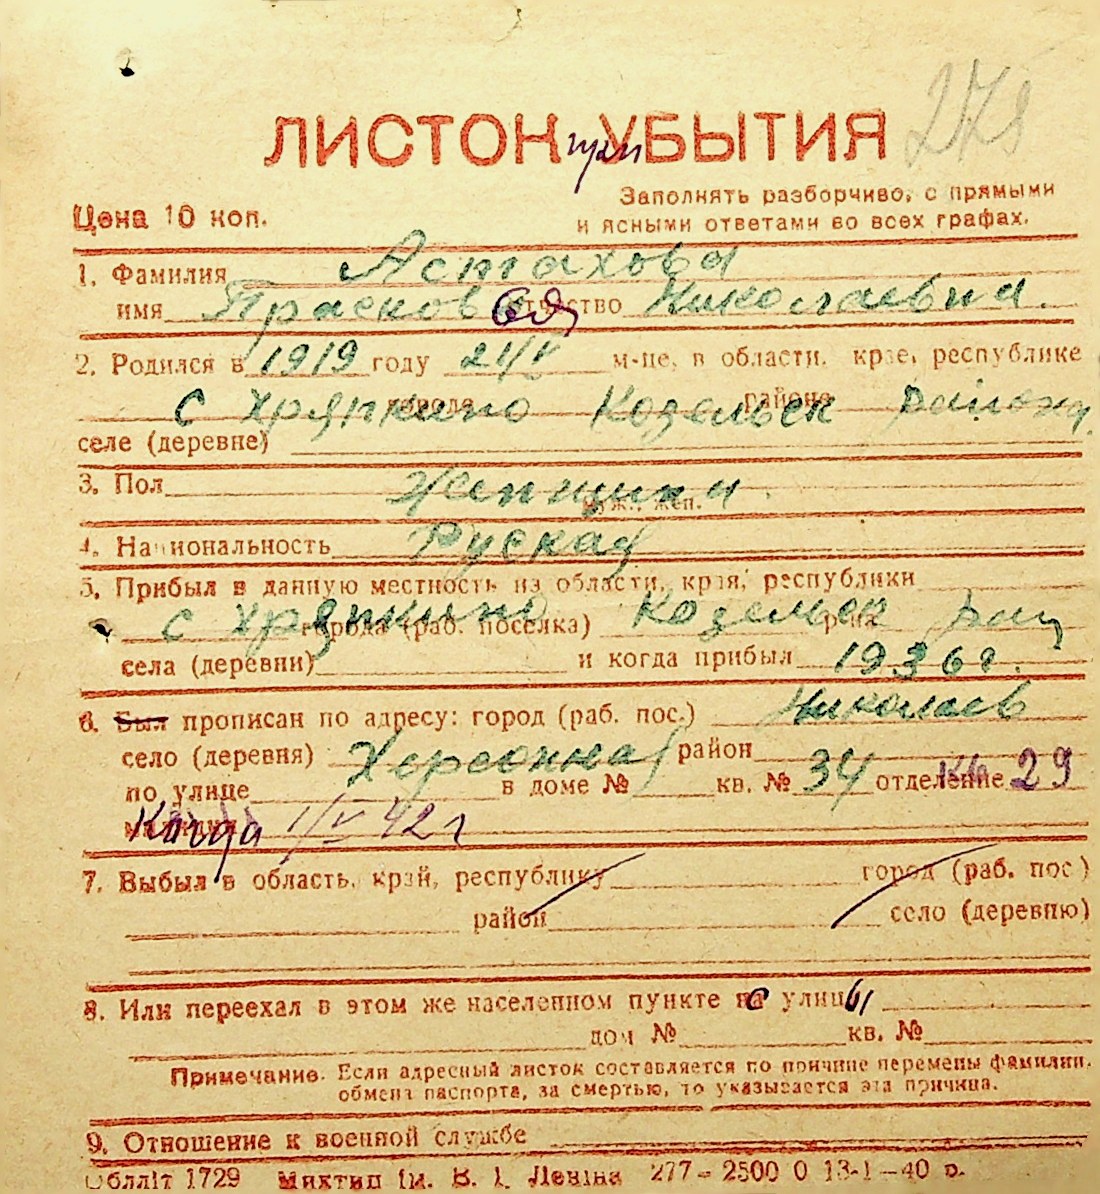 278
ЛИСТОК УБЫТИЯ
при
Цена 10 коп.
Заполнять разборчиво, с прямыми
и ясными ответами во всех графах.
1. Фамилия Астахова
имя Прасковья отчество Николаевна.
2. Родился в 1919 году 21/V м-це, в области, крае, республике
с Хряпкино города Козельск района района
селе (деревне)
3. Пол Женщина.
муж., жен.
4. Национальность Руская
5. Прибыл в данную местность из области, края, республики
с Хряпкино города (раб. поселка) Козельск р-на
села (деревни) и когда прибыл 1936 г.
6. Был прописан по адресу: город (раб. пос.) Николаев
село (деревня) Херсонная район
по улице в доме № кв. № 34 отделение кв 29
милиции Когда 1/V 42 г
7. Выбыл в область, край, республику город (раб. пос)
район село (деревню)
8. Или переехал в этом же населенном пункте на с улицы
дом № кв. №
Примечание. Если адресный листок составляется по причине перемены фамилии,
обмена паспорта, за смертью, то указывается эта причина.
9. Отношение к военной службе
Облліт 1729 Миктип ім. В. І. Леніна 277–2500 0 13-1–40 р.